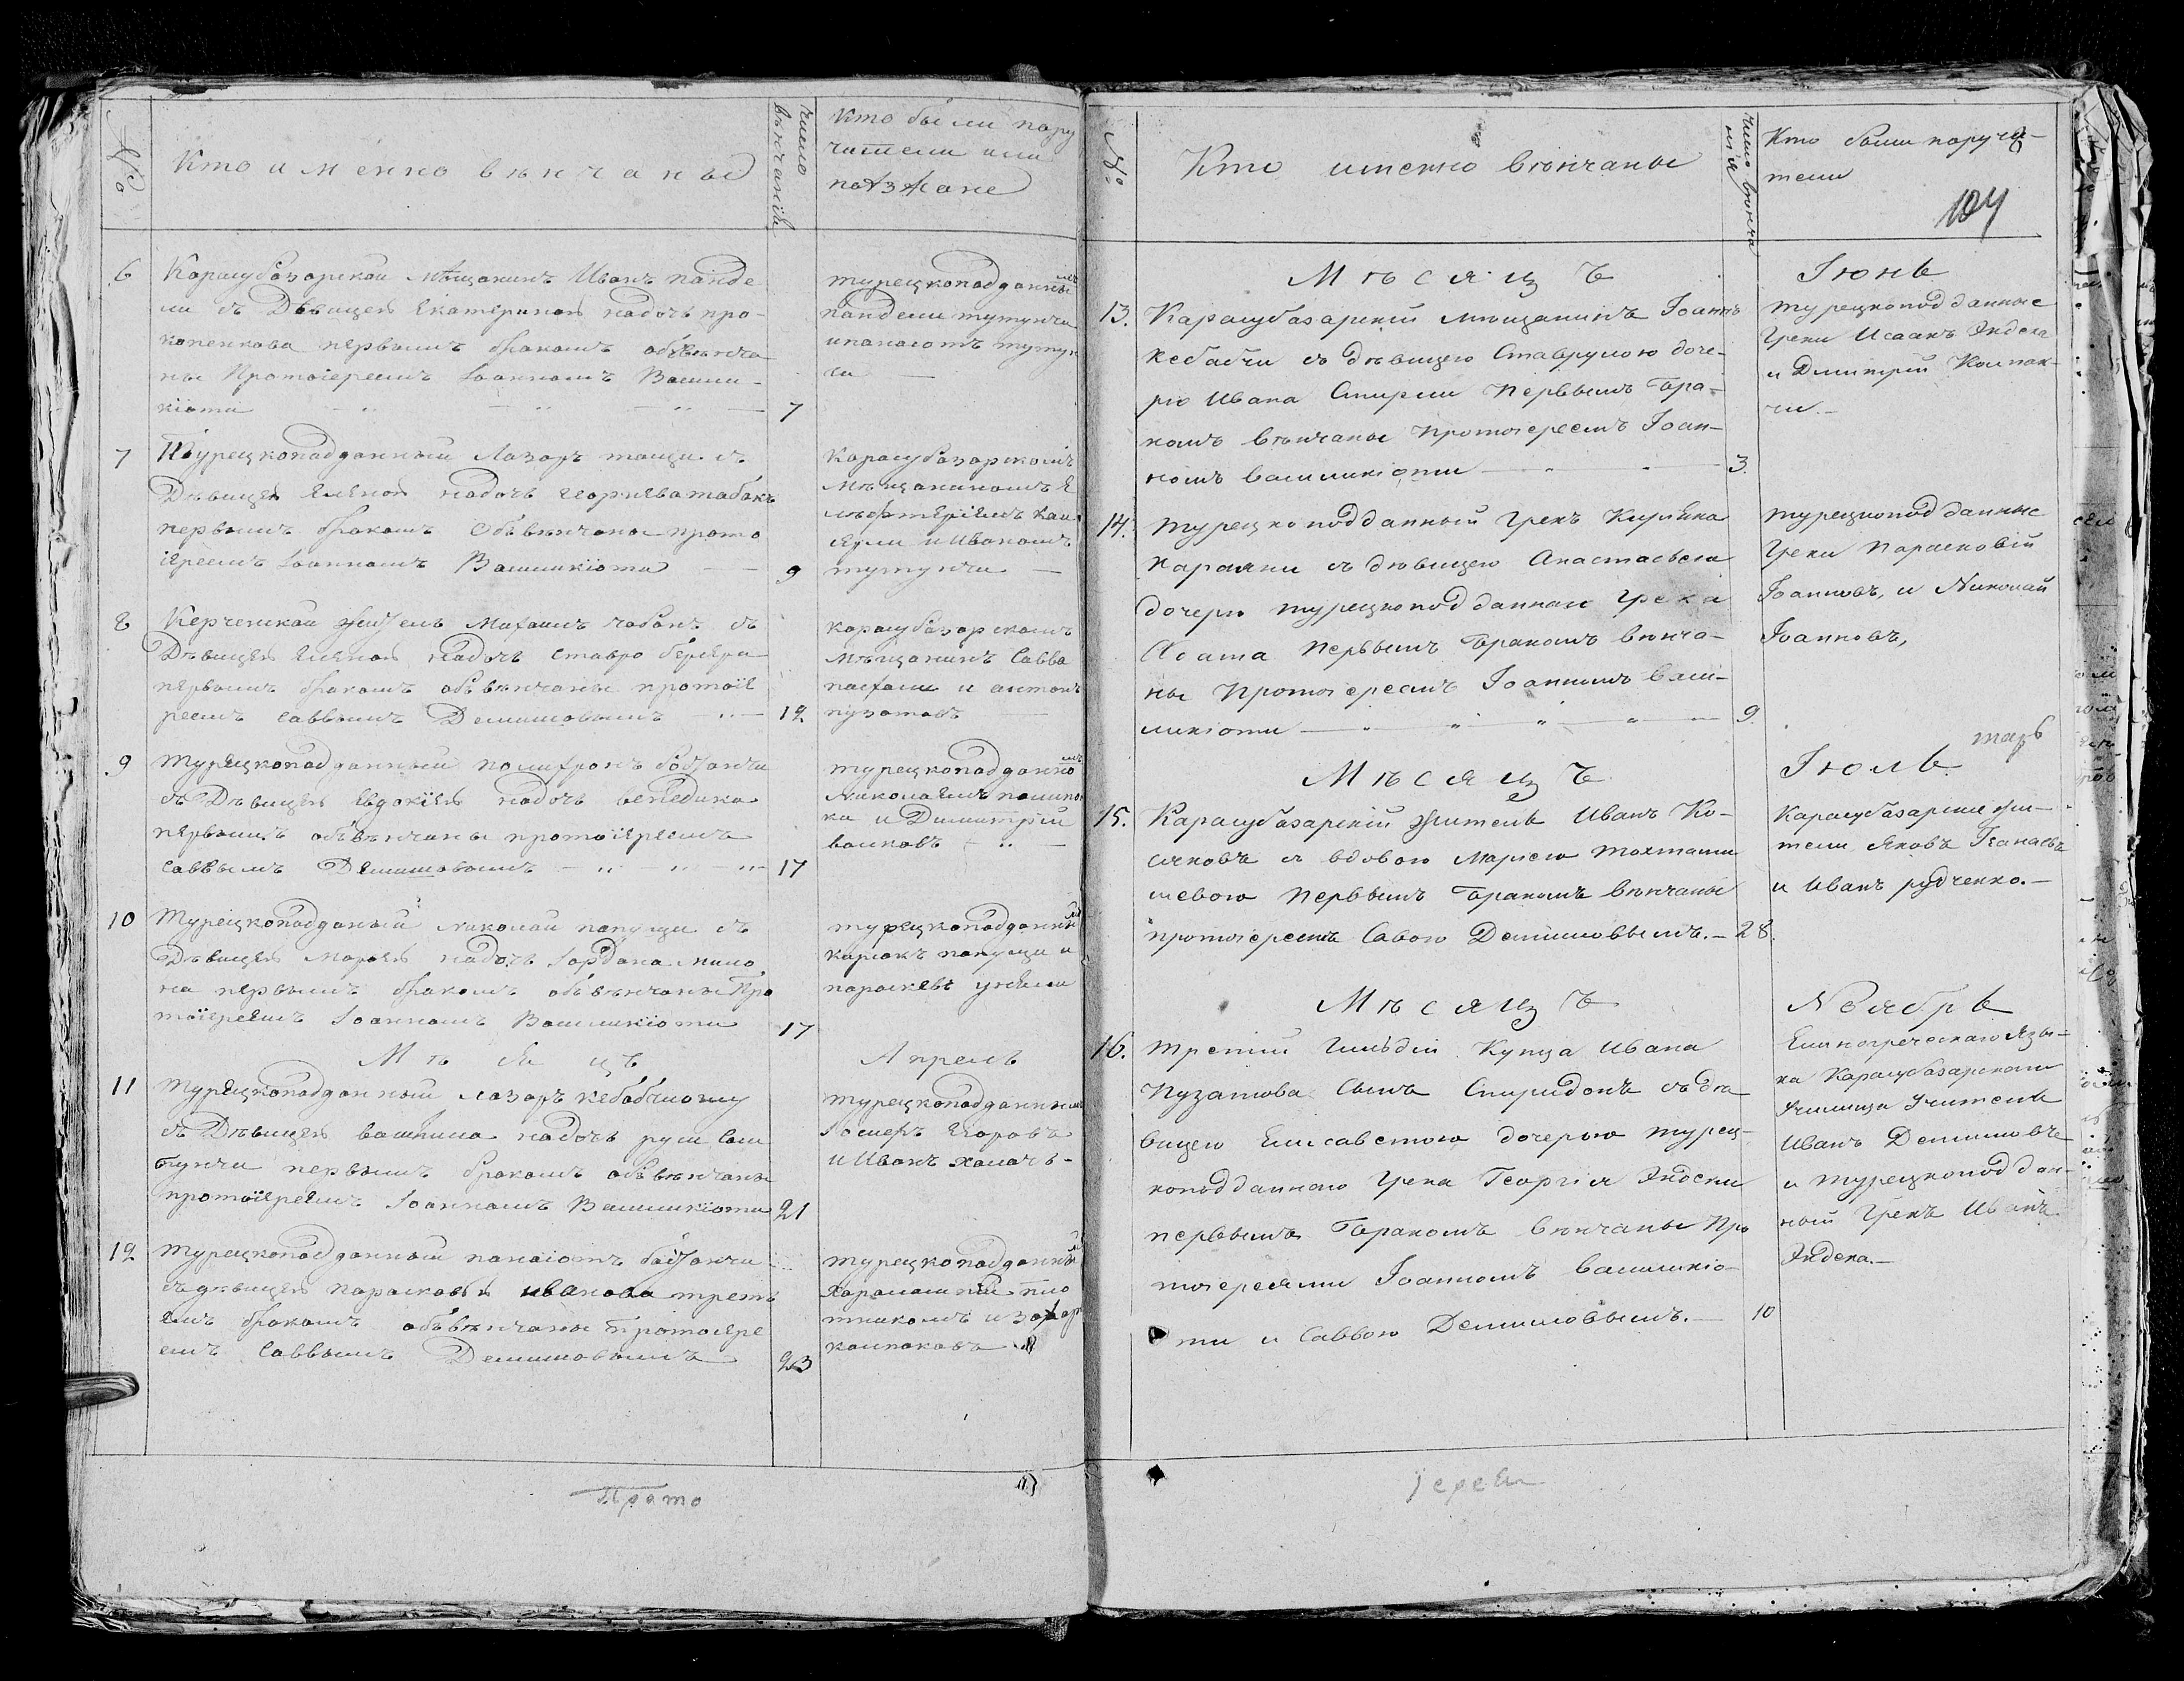 №
Кто именно вѣнчаны
число вѣнчанія
Кто были пору
чители или
поѣзжане
6
Карасубазарскои мѣщанинъ Иванъ панде
ли съ Дѣвицей Екатериной надочь про-
копенкова первымъ бракомъ обвѣнча
ны Протоіереемъ Іоанномъ Васили-
кіоти
7
турецкоподданны мъ
пандели тутунчи
ипанаіотъ тутун
чи —
7
Турецкоподданный Лазарь тащи съ
Дѣвицей Еленой надочь георгиева табакъ
первымъ бракомъ Обвѣнчаны прото
іереемъ Іоанномъ Василикіоти
9
Карасубазарскомъ
мѣщаниномъ
и Иваномъ
тутунчи —
8
Керченской житель Михаилъ чабанъ съ
Дѣвицей Еленой надочь Ставро
первымъ бракомъ обвѣнчаны протоіе
реемъ Саввымъ Демишовымъ
12
карасубазарскомъ
мѣщанинъ Савва
и антонъ
пузатовъ
9
турецкоподданный полихронъ бостанчи
съ Дѣвицей Евдокіей надочь бенедика
первымъ обвѣнчаны протоіереемъ
Саввымъ Демишовымъ
17
турецкоподданно мъ
Николаемъ
ки и Димитрій
волковъ
10
Турецкоподданый николаи папуци съ
Дѣвицей Маріей надочь Іордана мило
на первымъ бракомъ обвѣнчаны Про
тоіереемъ Іоанномъ Василикіоти
17
турецкоподданны
папуци и
параскева
Мѣсяцъ
Апрель
11
Турецкоподданный лазарь кебабчиоглу
съ Дѣвицей надочь
первымъ бракомъ обвѣнчаны
протоіереемъ Іоанномъ Василикіоти
21
турецкоподданны мъ
Егоровъ
и Иванъ
12
Турецкоподданный панаіотъ бостанчи
съ дѣвицей парасковьи иванова треть
емъ бракомъ обвѣнчаны Протоіере
емъ Саввымъ Демишовымъ
23
турецкоподданны
Харалампій
и захар
колпаковъ
Прото
№
Кто именно вѣнчаны
число вѣнча
нія
Кто были поручи-
тели
104
Мѣсяцъ
Іюнь
13.
Карасубазарскій мѣщанинъ Іоаннъ
Кебабчи съ дѣвицею Ставрулою доче-
рю Ивана Спирели Первымъ Бра-
комъ вѣнчаны Протоіереемъ Іоан-
номъ Василикіоти
3.
Турецкоподданные
Греки Исаакъ Яндека
и Дмитрій Колпак-
чи.-
14.
Турецкоподданный Грекъ Кирьяко
Караяни съ дѣвицею Анастасьею
дочерю турецкоподданнаго Грека
Асата Первымъ Бракомъ вѣнча-
ны Протоіереемъ Іоанномъ Васи-
ликіоти
9.
Турецкоподданные
Греки Парасковій
Іоанновъ, и Николай
Іоанновъ,
Мѣсяцъ
Іюль
15.
Карасубазарскій житель Иванъ Ко-
сяковъ съ вдовою Маріею Тохтами
шевою Первымъ Бракомъ вѣнчаны
протоіереемъ Савою Демишовымъ.-
28.
Карасубазарские жи-
тели Яковъ
и Иванъ рудченко.-
Мѣсяцъ
Ноябрь
16.
Третій Гильдіи Купца Ивана
Пузатова Сынъ Спиридонъ съ дѣ
вицею Елисаветою дочерью турец-
коподданнаго Грека Георгія Яндеки
первымъ Бракомъ вѣнчаны Про
тоіереями Іоанномъ Василикіо-
ти и Саввою Демишовымъ.-
10
Еллиногреческаго Язы-
ка Карасубазарскаго
Училища Учитель
Иванъ Демишовъ
и Турецкоподдан-
ный Грекъ Иванъ
Яндека.-
Іереи